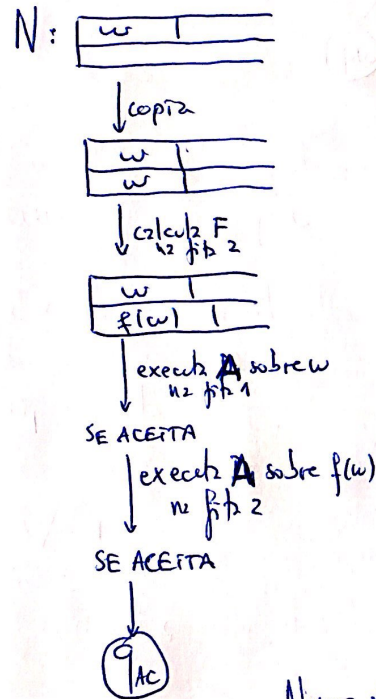 N:
w
copia
w
w
calcula F
na fita 2
w
f(w)
executa A sobre w
na fita 1
SE ACEITA
executa A sobre f(w)
na fita 2
SE ACEITA
q AC